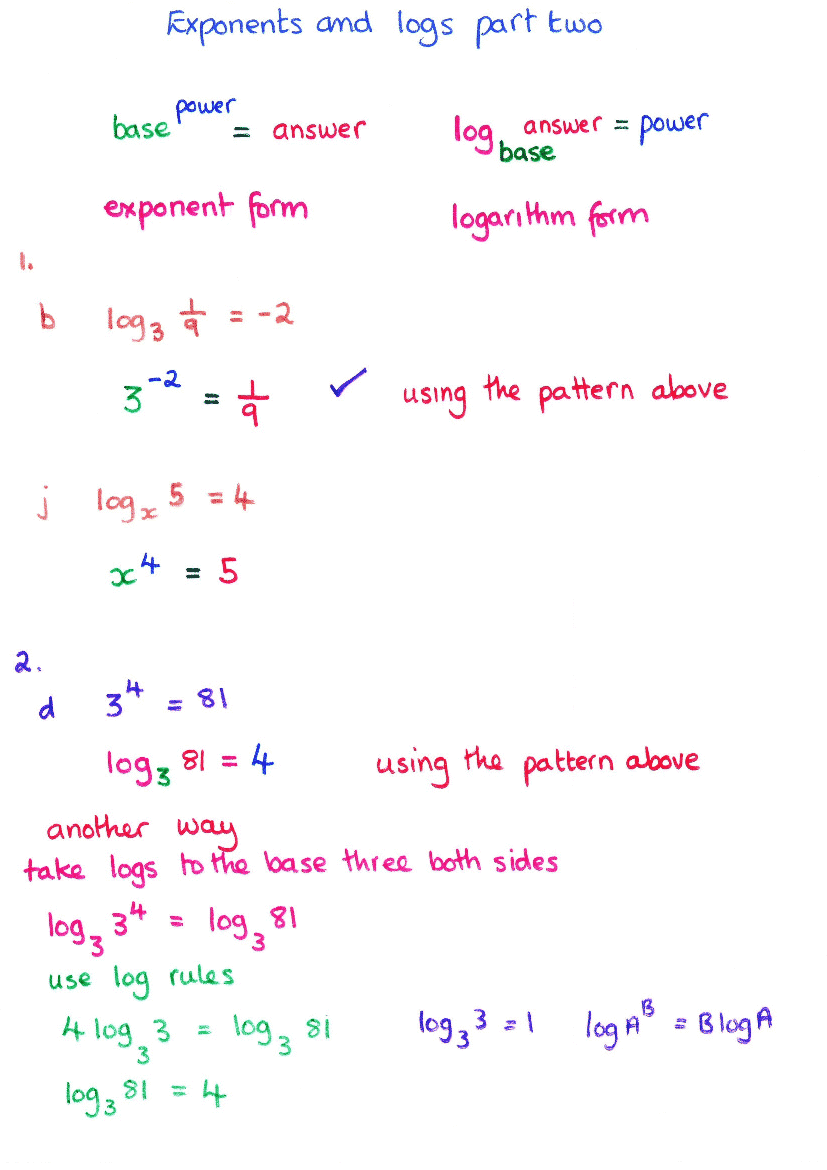 Exponents and logs part two
base^power = answer    log_base answer = power
exponent form    logarithm form
1.
b  log₃ 1/9 = -2
3⁻² = 1/9 ✓ using the pattern above
j  logₓ 5 = 4
x⁴ = 5
2.
d  3⁴ = 81
log₃ 81 = 4    using the pattern above
another way
take logs to the base three both sides
log₃ 3⁴ = log₃ 81
use log rules
4 log₃ 3 = log₃ 81    log₃ 3 = 1    log A^B = B log A
log₃ 81 = 4